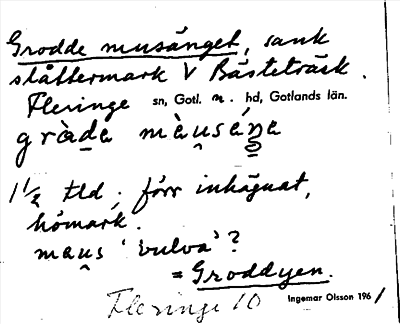 Grodde musänget, sank
slåttermark V Bästeträsk.
Fleringe sn, Gotl. n. hd, Gotlands län.
gràda màuséŋa
1 1/2 tld; förr inhägnat,
hömark.
maus 'vulva'?
= Groddyen.
Fleringe 10 Ingemar Olsson 1961